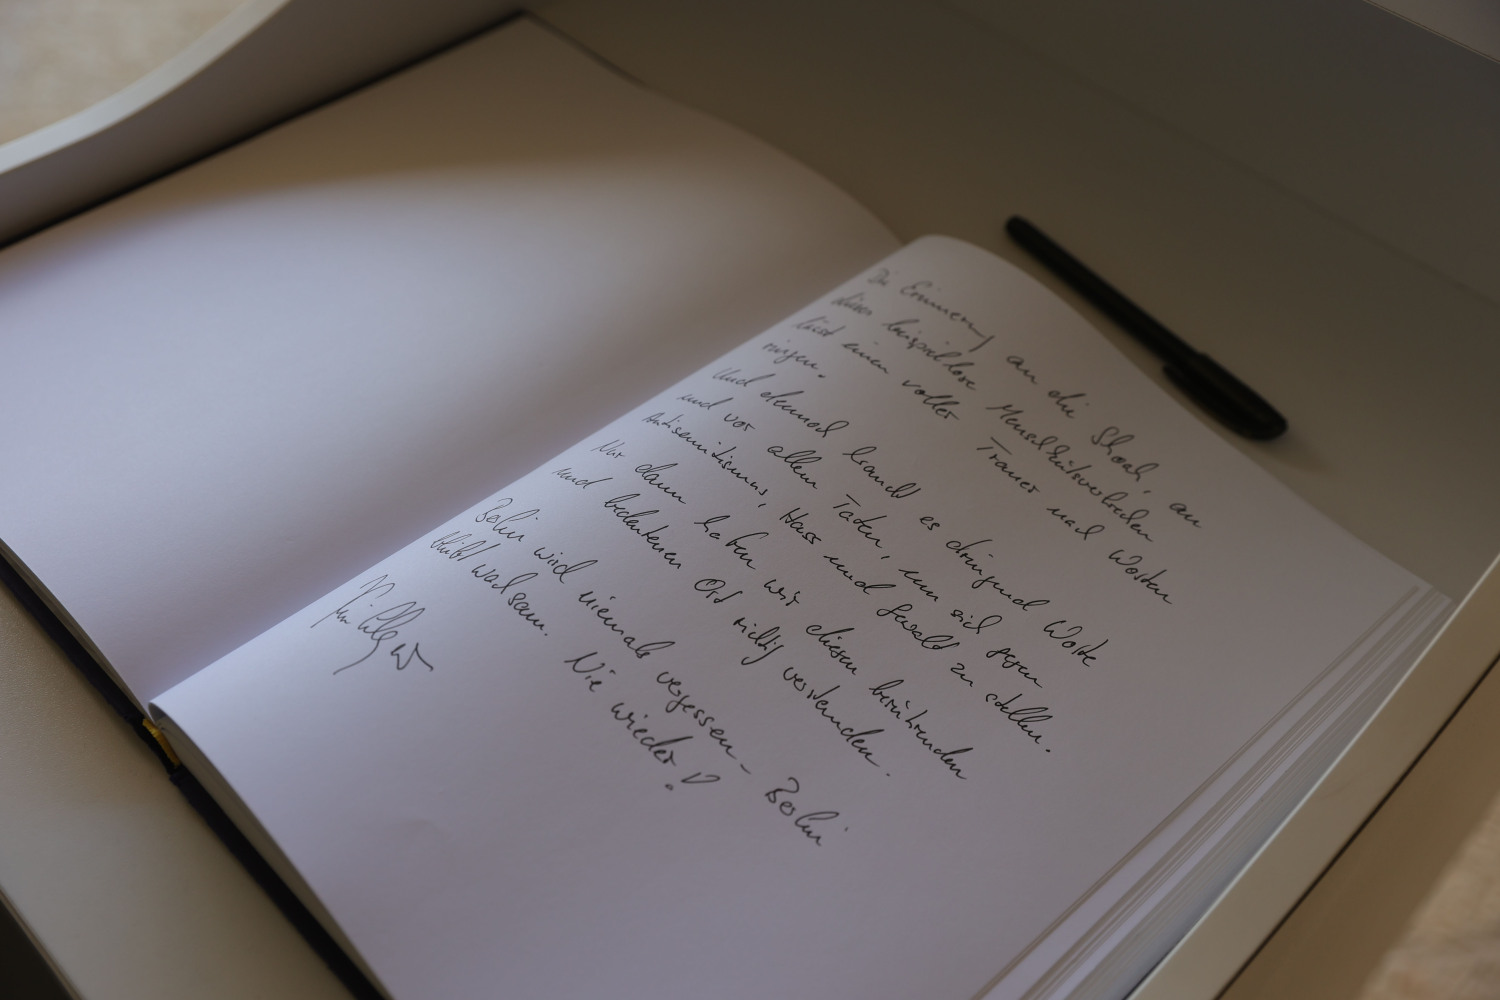 Die Erinnerung an die Shoah, an
dieses beispiellose Menschheitsverbrechen
lässt einen voller Trauer nach Worten
ringen.
Und dennoch braucht es dringend Worte
und vor allem Taten, um sich gegen
Antisemitismus, Hass und Gewalt zu stellen.
Nur dann haben wir diesen berührenden
und bedeutenen Ort richtig verstanden.
Berlin wird niemals vergessen - Berlin
bleibt wachsam. Nie wieder!